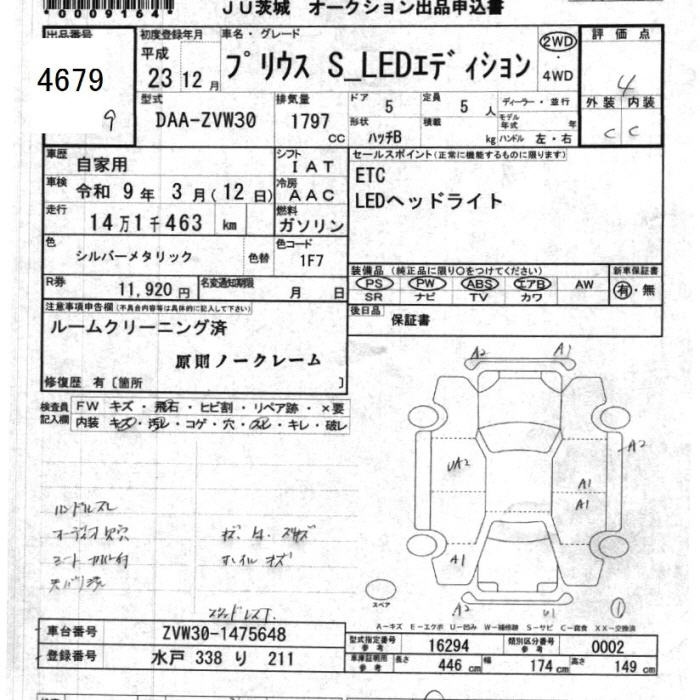 *0009164*
JU茨城 オークション出品申込書
出品番号
4679
9
初度登録年月
平成
23 12月
車名・グレード
プリウス S_LEDエディション
2WD
・
4WD
評価点
4
外装 内装
C C
型式
DAA-ZVW30
排気量
1797
CC
ドア 5
定員 5 人
形状
ハッチB
積載
kg
ディーラー・並行
モデル年式 年
ハンドル 左・右
車歴
自家用
シフト
I AT
車検
令和 9年 3月(12日)
冷房
A AC
走行
14万1千463 km
燃料
ガソリン
色
シルバーメタリック
色替
色コード
1F7
R券
11,920円
名変通知期限
月 日
セールスポイント(正常に機能するものに限ります)
ETC
LEDヘッドライト
装備品(純正品に限り○をつけてください)
PS PW ABS エアB AW
SR ナビ TV カワ
新車保証書
有・無
後日品
保証書
注意事項申告欄(不具合内容等は具体的に記入して下さい)
ルームクリーニング済
原則ノークレーム
修復歴 有〔箇所 〕
検査員記入欄
FW キズ・飛石・ヒビ割・リペア跡・×要
内装 キズ・汚レ・コゲ・穴・スレ・キレ・破レ
ハンドルスレ
オーディオ欠穴
天バリ
ホイルキズ
A2 A1
A2
UA2
A1
A1
A1
A2 U1
①
スペア
A-キズ E-エクボ U-凹み W-補修跡 S-サビ C-腐食 XX-交換済
車台番号
ZVW30-1475648
登録番号
水戸 338 り 211
型式指定番号
参考
16294
類別区分番号
参考
0002
車庫証明用
参考
長さ 446 cm
幅 174 cm
高さ 149 cm